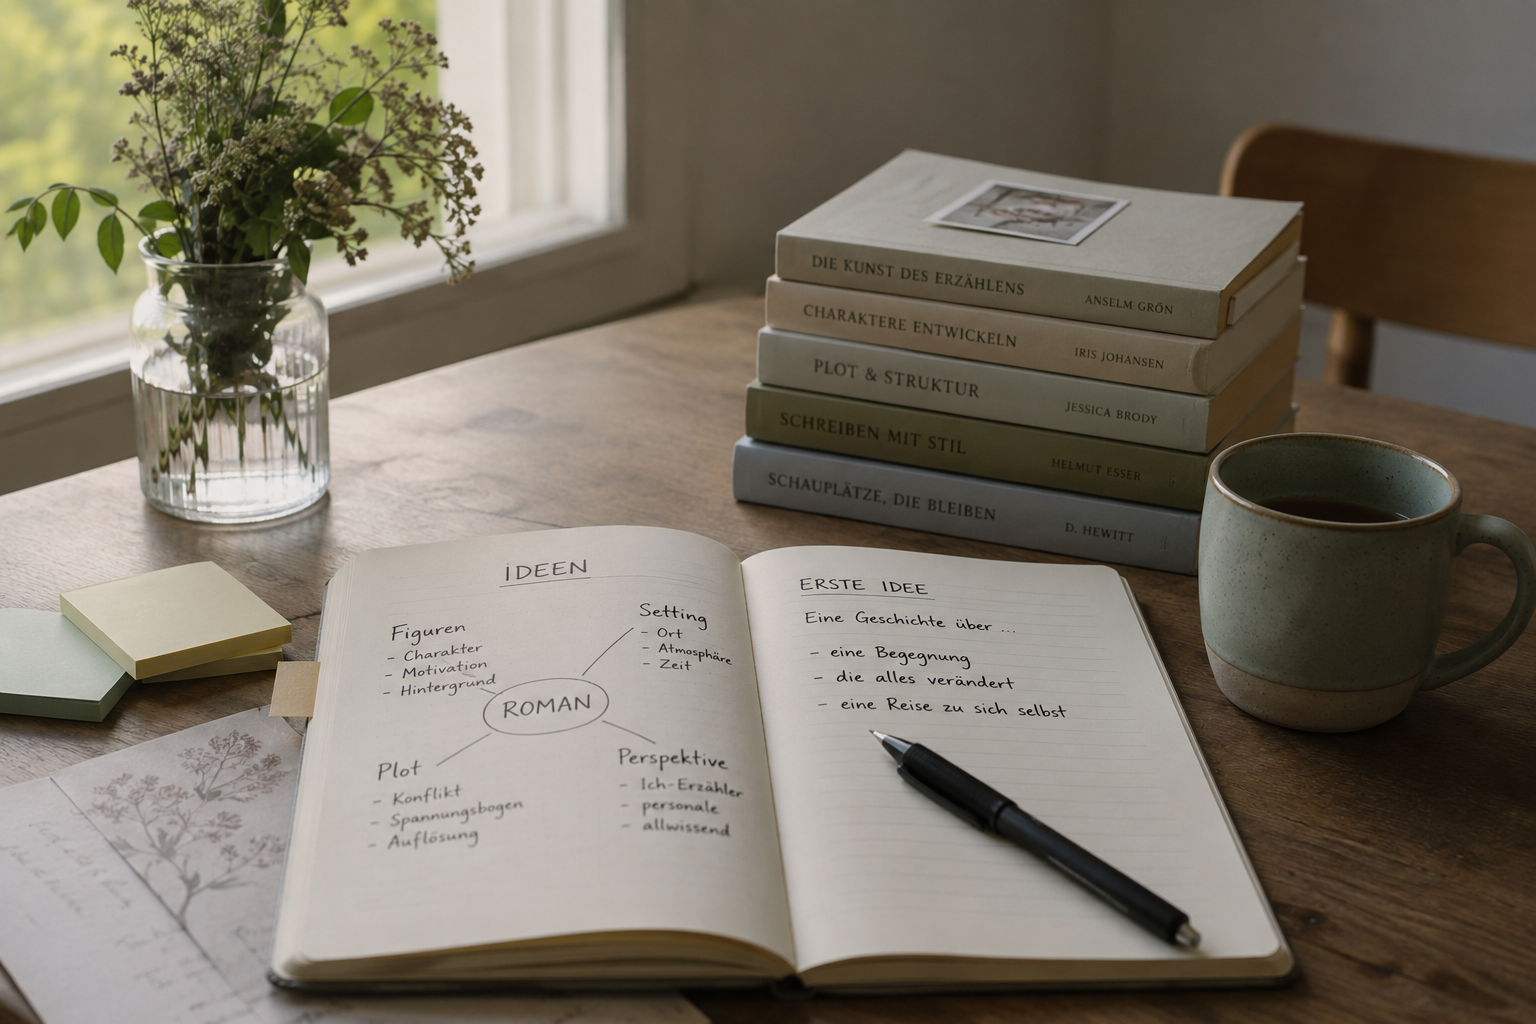 DIE KUNST DES ERZÄHLENS ANSELM GRÖN
CHARAKTERE ENTWICKELN IRIS JOHANSEN
PLOT & STRUKTUR JESSICA BRODY
SCHREIBEN MIT STIL HELMUT ESSER
SCHAUPLÄTZE, DIE BLEIBEN D. HEWITT
IDEEN
Figuren
- Charakter
- Motivation
- Hintergrund
Setting
- Ort
- Atmosphäre
- Zeit
ROMAN
Plot
- Konflikt
- Spannungsbogen
- Auflösung
Perspektive
- Ich-Erzähler
- personale
- allwissend
ERSTE IDEE
Eine Geschichte über ...
- eine Begegnung
- die alles verändert
- eine Reise zu sich selbst